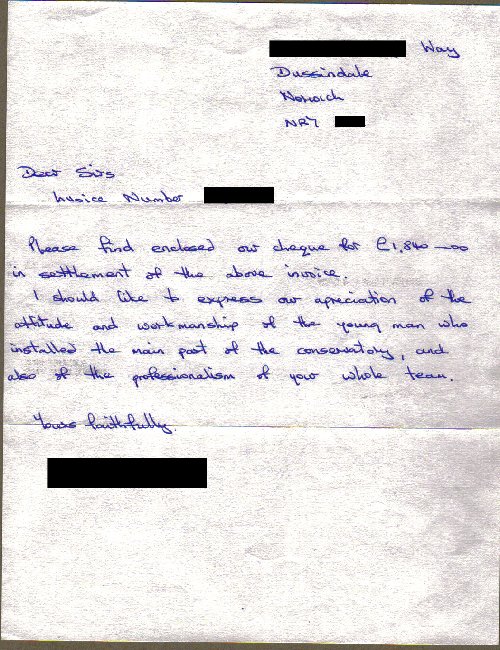 Way
Dussindale
Norwich
NR7
Dear Sirs
Invoice Number
Please find enclosed our cheque for £1,840—00
in setttlement of the above invoice.
I should like to express our apreciation of the
attitude and workmanship of the young man who
installed the main part of the conservatory, and
also of the professionalism of your whole team.
Yours faithfully.